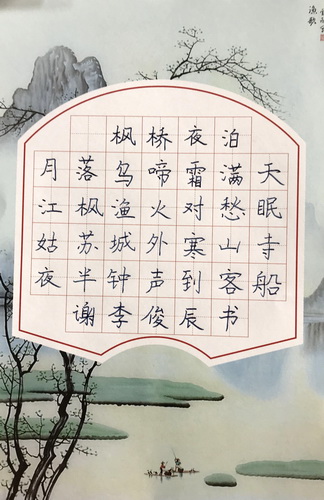 枫桥夜泊
月落乌啼霜满天
江枫渔火对愁眠
姑苏城外寒山寺
夜半钟声到客船
谢李俊辰书
渔歌